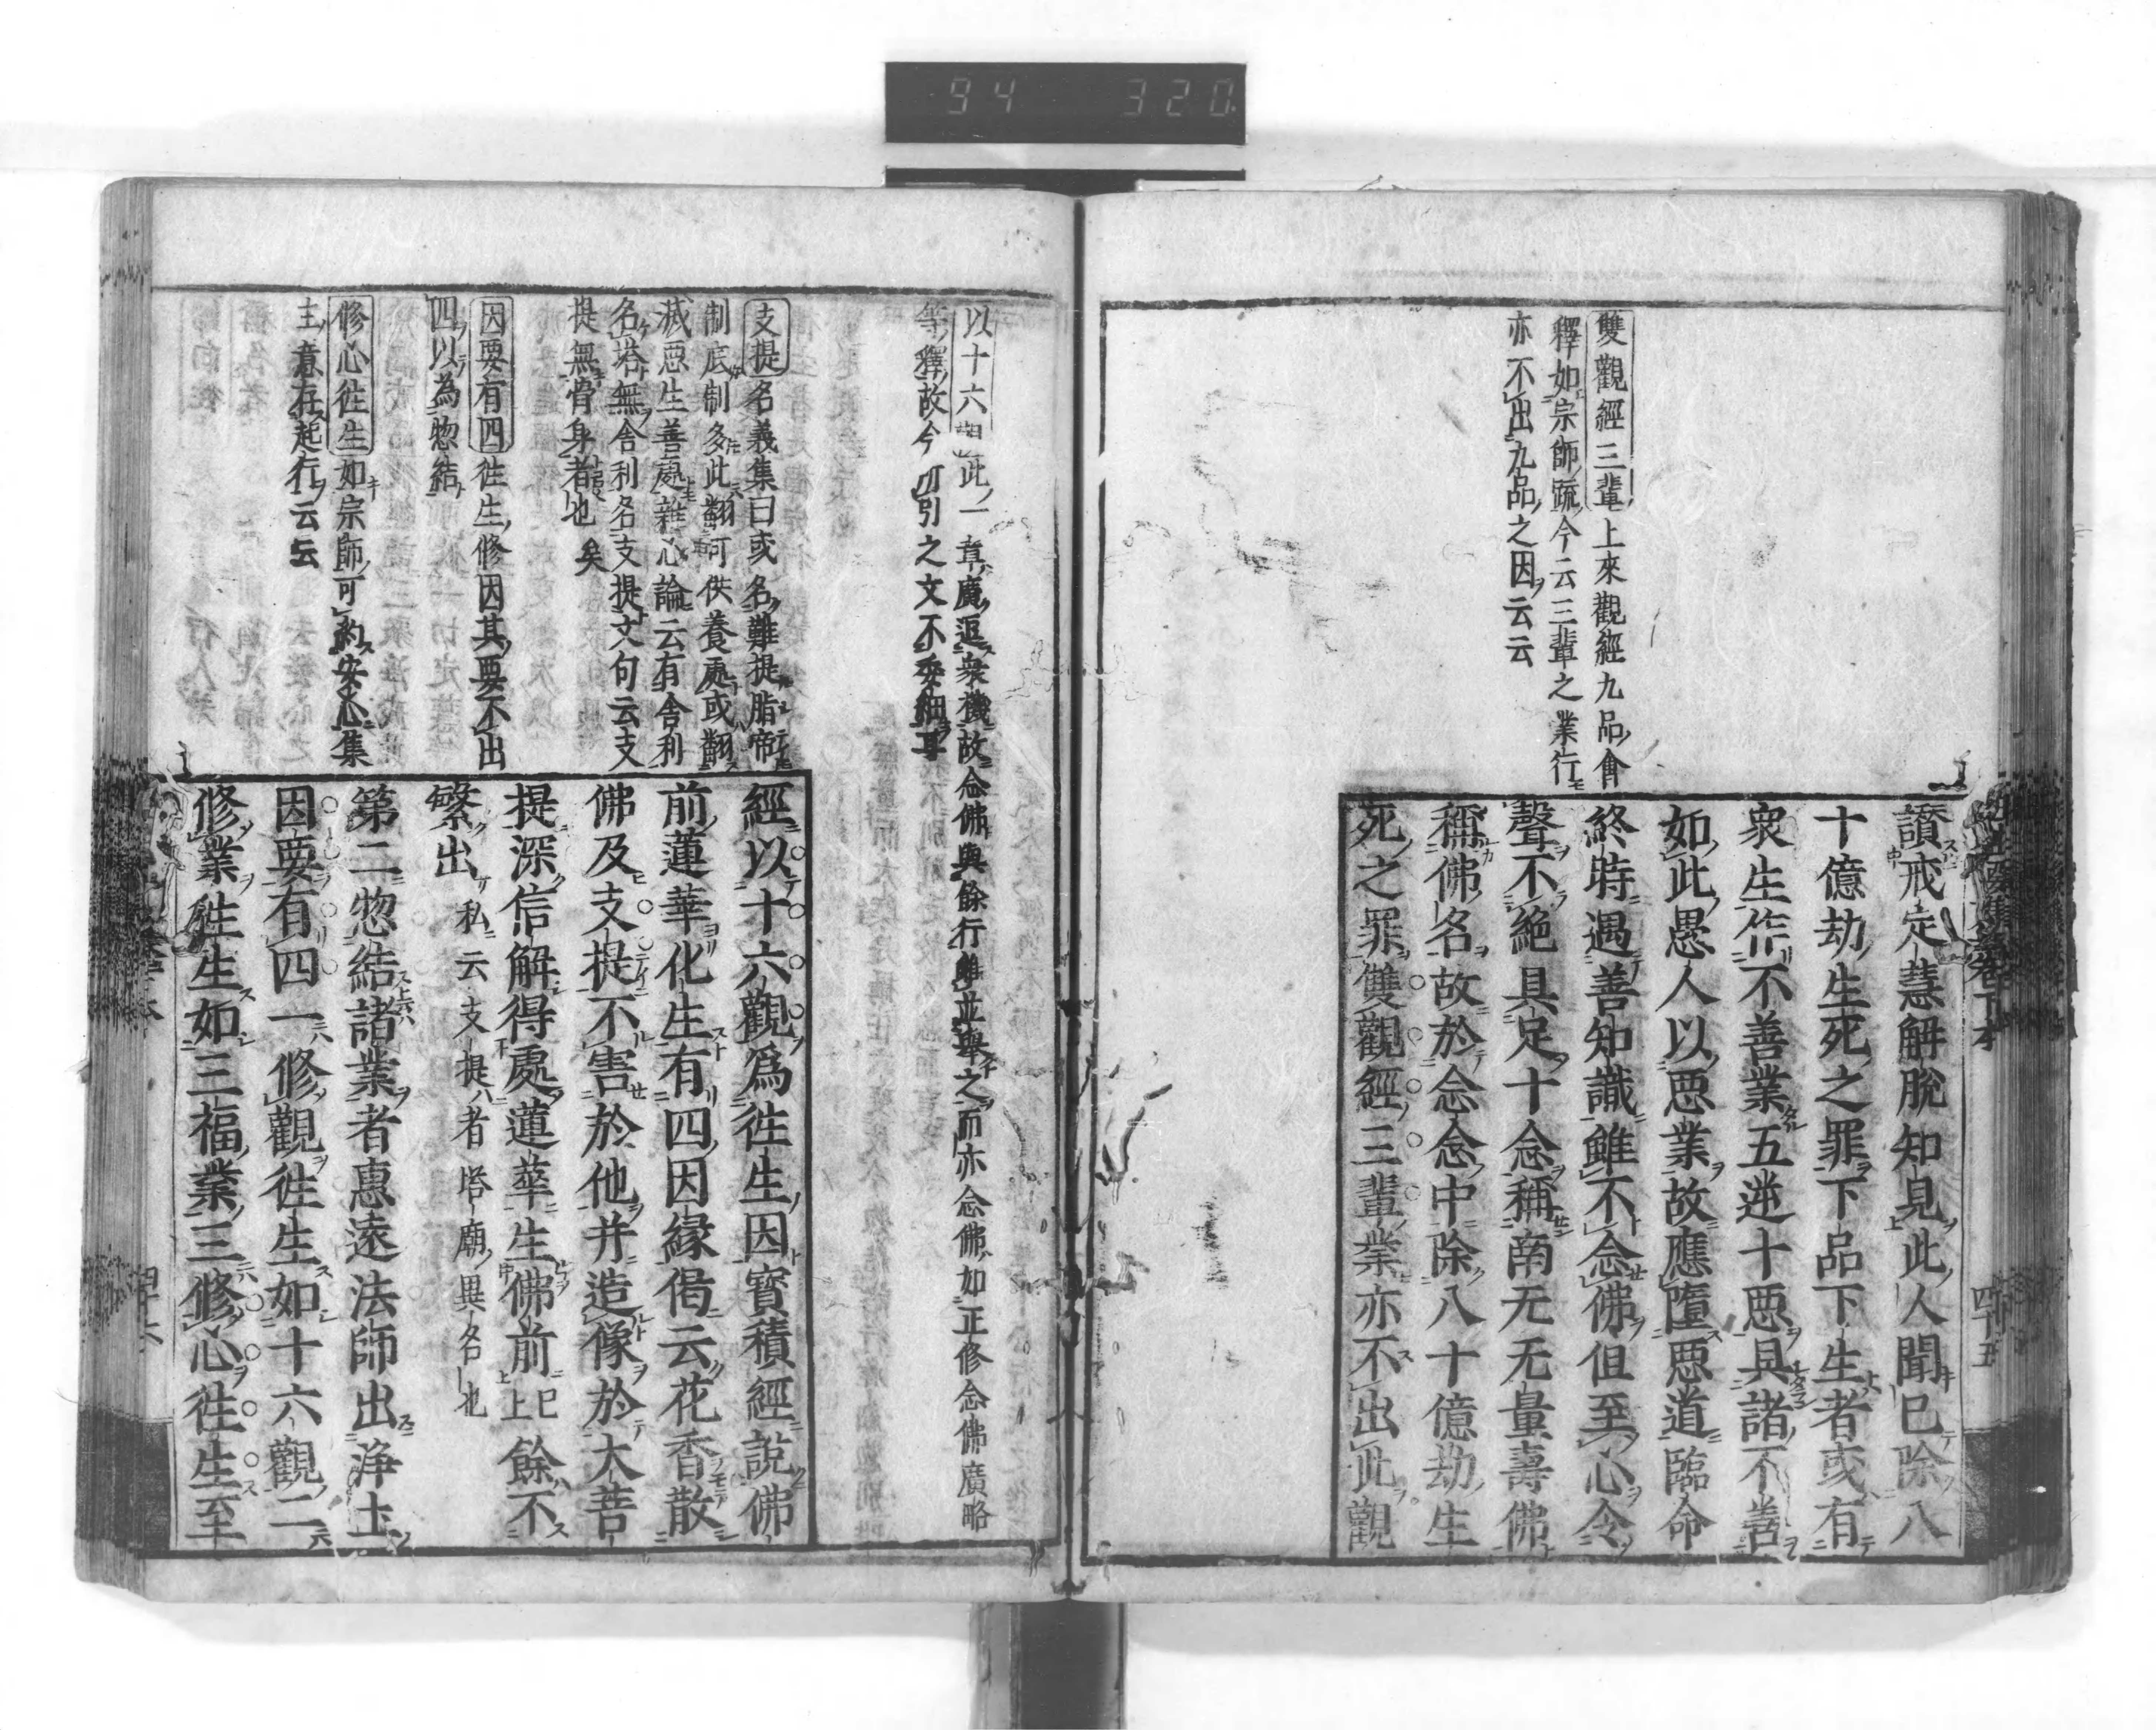 94 320
雙觀經三輩上來觀經九品會
釋如宗師疏今云三輩之業行
亦不出九品之因云云
讃戒定慧解脫知見此人聞已除八
十億劫生死之罪下品下生者或有
衆生作不善業五逆十惡具諸不善
如此愚人以惡業故應墮惡道臨命
終時遇善知識雖不念佛但至心令
聲不絕具足十念稱南无无量壽佛
稱佛名故於念念中除八十億劫生
死之罪雙觀經三輩業亦不出此觀
四十五
以十六觀此一章廣逗衆機故念佛與餘行雖並舉之而亦念佛如正修念佛廣略
等釋故今所引之文不委細耳
支提名義集曰或名難提脂帝
制底制多此翻可供養處或翻
滅惡生善處雜心論云有舍利
名塔無舍利名支提文句云支
提無骨身者也 矣
因要有四徃生修因其要不出
四以為惣結
修心徃生如宗師可約安心集
主意在起行云云
經以十六觀爲徃生因寳積經說佛
前蓮華化生有四因緣偈云花香散
佛及支提不害於他并造像於大菩
提深信解得處蓮華生佛前已上餘不
繁出私云支提者塔廟異名也
第二惣結諸業者惠遠法師出淨土
因要有四一修觀徃生如十六觀二
修業徃生如三福業三修心徃生至
四十六